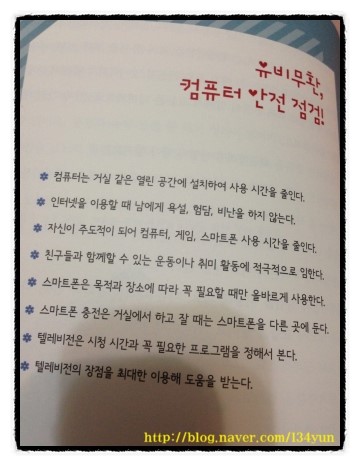 유비무환,
컴퓨터 안전 점검!
컴퓨터는 거실 같은 열린 공간에 설치하여 사용 시간을 줄인다.
인터넷을 이용할 때 남에게 욕설, 험담, 비난을 하지 않는다.
자신이 주도적이 되어 컴퓨터, 게임, 스마트폰 사용 시간을 줄인다.
친구들과 함께할 수 있는 운동이나 취미 활동에 적극적으로 임한다.
스마트폰은 목적과 장소에 따라 꼭 필요할 때만 올바르게 사용한다.
스마트폰 충전은 거실에서 하고 잘 때는 스마트폰을 다른 곳에 둔다.
텔레비전은 시청 시간과 꼭 필요한 프로그램을 정해서 본다.
텔레비전의 장점을 최대한 이용해 도움을 받는다.
http://blog.naver.com/134yun